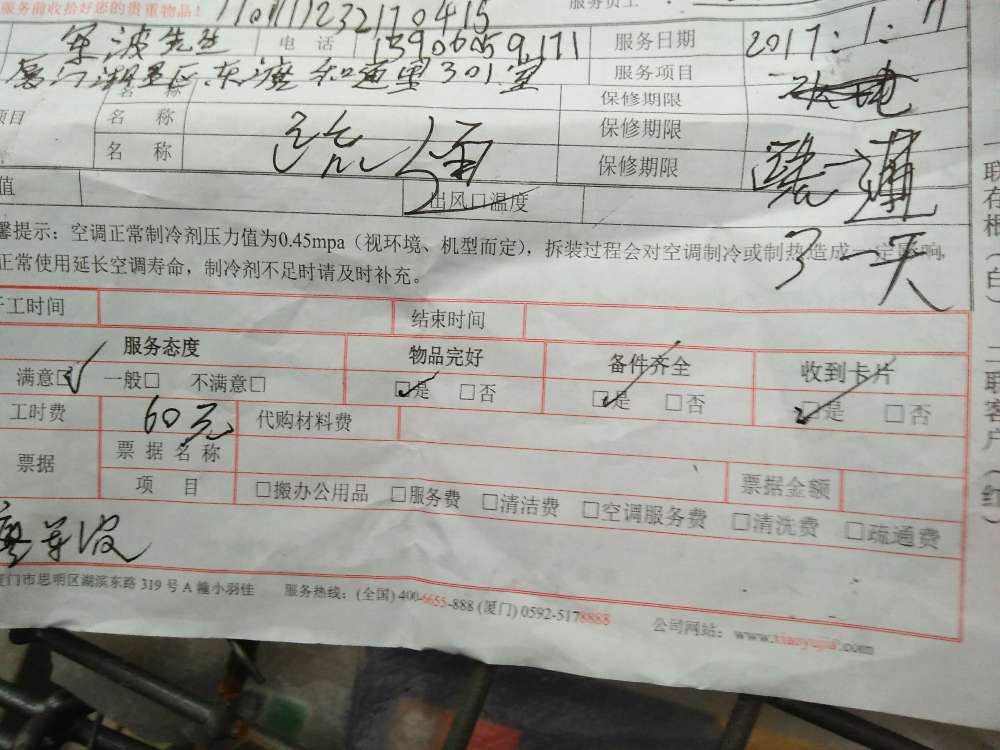 服务前收拾好您的贵重物品！ 服务员工：
军波先生 电 话 服务日期 2017.1.11
厦门湖里区东渡和通里301室 服务项目
名 称 保修期限
项目 名 称 保修期限
名 称 治 保修期限 疏通
值 出风口温度
馨提示：空调正常制冷剂压力值为0.45mpa（视环境、机型而定），拆装过程会对空调制冷或制热造成一定影响，
正常使用延长空调寿命，制冷剂不足时请及时补充。
了一天
开工时间 结束时间
服务态度 物品完好 备件齐全 收到卡片
满意□ 一般□ 不满意□ □是 □否 □是 □否 □是 □否
工时费 60元 代购材料费
票据 票据名称 票据金额
项 目 □搬办公用品 □服务费 □清洁费 □空调服务费 □清洗费 □疏通费
廖军波
厦门市思明区湖滨东路 319 号 A 幢小羽佳 服务热线：(全国) 400-6655-888 (厦门) 0592-5178888 公司网站：www.xiaoyujia.com
一联存根（白）二联客户（红）